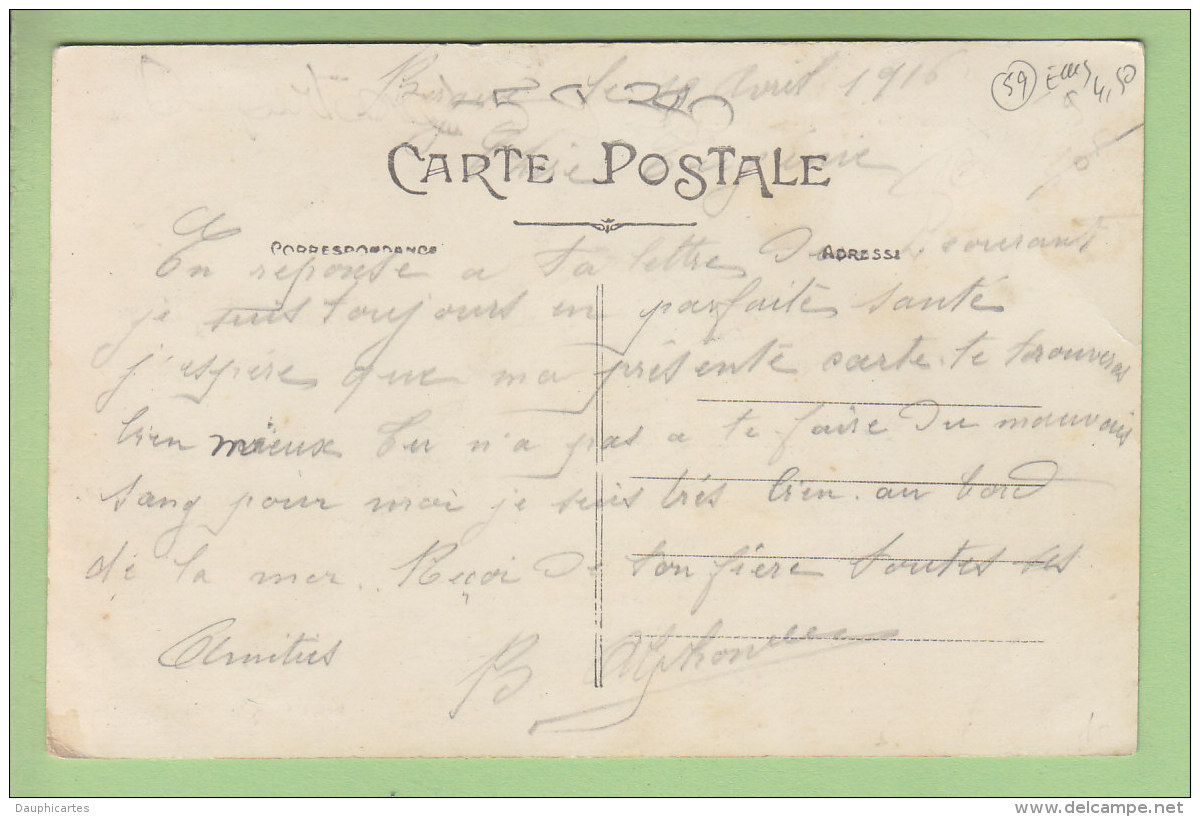 le Avril 1916
59
4,50
CARTE POSTALE
CORRESPONDANCE
ADRESSE
En reponse a ta lettre du courant
je suis toujours en parfaite santé
j'espère que ma présente carte te trouveras
bien mieux tu n'a pas a te faire du mauvais
sang pour moi je suis trés bien au bord
de la mer. Reçoi de ton frère toutes ses
Amitiés
B Alphonse
Dauphicartes
delcampe.net